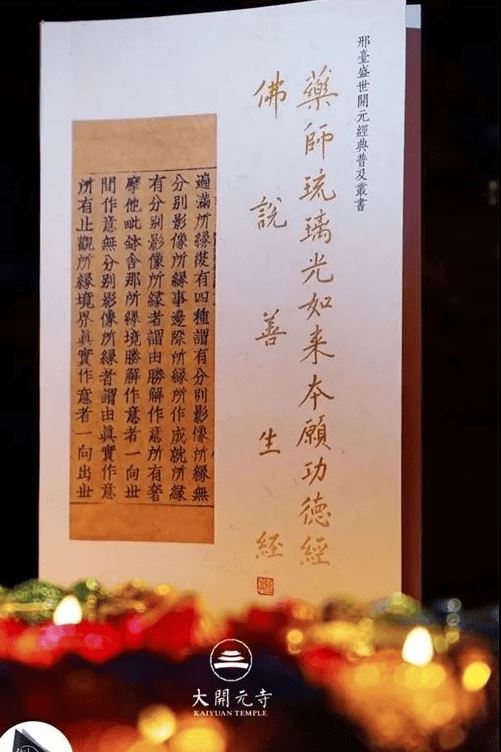 邢臺盛世開元經典普及叢書
藥師琉璃光如来本願功德經
佛說善生經
遍滿所緣復有四種謂有分別影像所緣無
分別影像所緣事邊際所緣所作成就所緣
有分別影像所緣者謂由勝解作意所有奢
摩他毗鉢舍那所緣境勝解作意者一向世
間作意無分別影像所緣者謂由真實作意
所有止觀所緣境界真實作意者一向出世
大開元寺
KAIYUAN TEMPLE